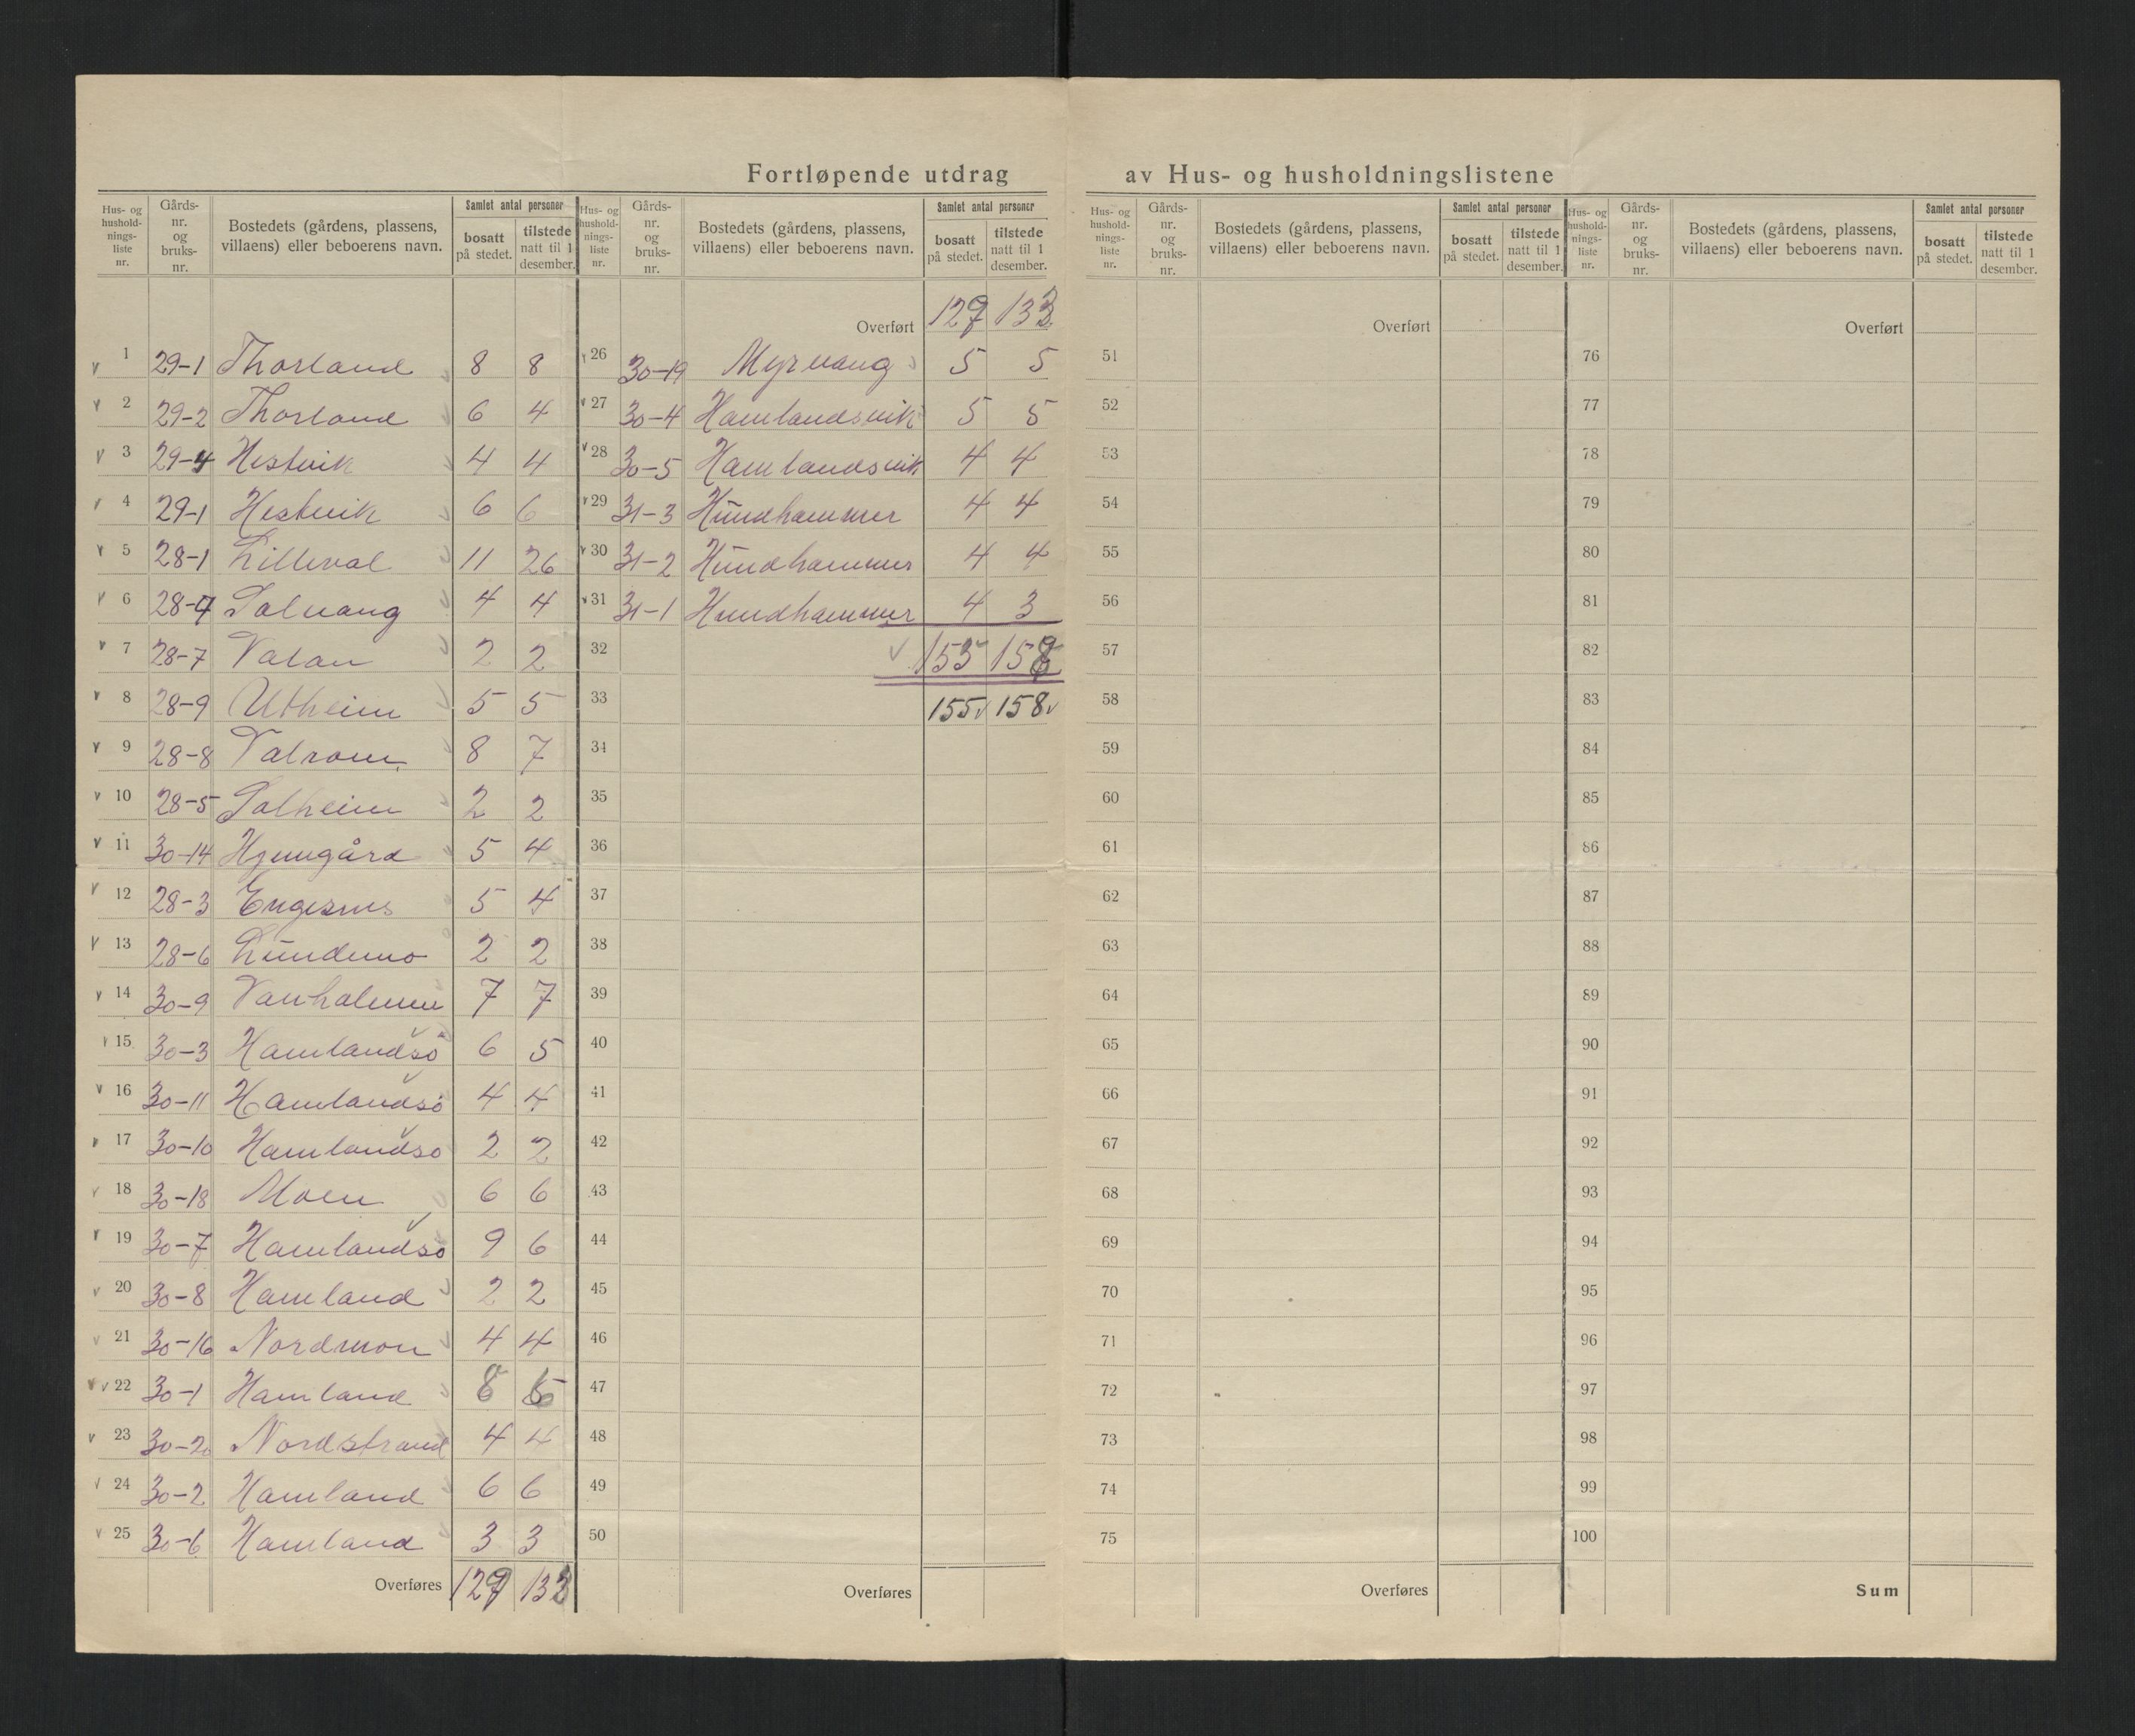 Fortløpende utdrag av Hus- og husholdningslistene
Hus- og hushold-nings-liste nr. Gårds-nr. og bruks-nr. Bostedets (gårdens, plassens, villaens) eller beboerens navn. Samlet antal personer bosatt på stedet. tilstede natt til 1 desember.
1 29-1 Thorland 8 8
2 29-2 Thorland 6 4
3 29-4 Hestvik 4 4
4 29-1 Hestvik 6 6
5 28-1 Lilleval 11 26
6 28-4 Solvang 4 4
7 28-7 Valan 2 2
8 28-9 Utheim 5 5
9 28-8 Valrom 8 7
10 28-5 Solheim 2 2
11 30-14 Hjemgård 5 4
12 28-3 Engesnes 5 4
13 28-6 Lundemo 2 2
14 30-9 Vanholmen 7 7
15 30-3 Hamlandsö 6 5
16 30-11 Hamlandsö 4 4
17 30-10 Hamlandsö 2 2
18 30-18 Moen 6 6
19 30-7 Hamlandsö 9 6
20 30-8 Hamland 2 2
21 30-16 Nordmon 4 4
22 30-1 Hamland 8
23 30-20 Nordstrand 4 4
24 30-2 Hamland 6 6
25 30-6 Hamland 3 3
Overføres 129 133
Hus- og hushold-nings-liste nr. Gårds-nr. og bruks-nr. Bostedets (gårdens, plassens, villaens) eller beboerens navn. Samlet antal personer bosatt på stedet. tilstede natt til 1 desember.
Overført 129 133
26 30-19 Myrvang 5 5
27 30-4 Hamlandsvik 5 5
28 30-5 Hamlandsvik 4 4
29 31-3 Hundhammer 4 4
30 31-2 Hundhammer 4 4
31 31-1 Hundhammer 4 3
32 155 158
33 155 158
34
35
36
37
38
39
40
41
42
43
44
45
46
47
48
49
50
Overføres
Hus- og hushold-nings-liste nr. Gårds-nr. og bruks-nr. Bostedets (gårdens, plassens, villaens) eller beboerens navn. Samlet antal personer bosatt på stedet. tilstede natt til 1 desember.
Overført
51
52
53
54
55
56
57
58
59
60
61
62
63
64
65
66
67
68
69
70
71
72
73
74
75
Overføres
Hus- og hushold-nings-liste nr. Gårds-nr. og bruks-nr. Bostedets (gårdens, plassens, villaens) eller beboerens navn. Samlet antal personer bosatt på stedet. tilstede natt til 1 desember.
Overført
76
77
78
79
80
81
82
83
84
85
86
87
88
89
90
91
92
93
94
95
96
97
98
99
100
Sum